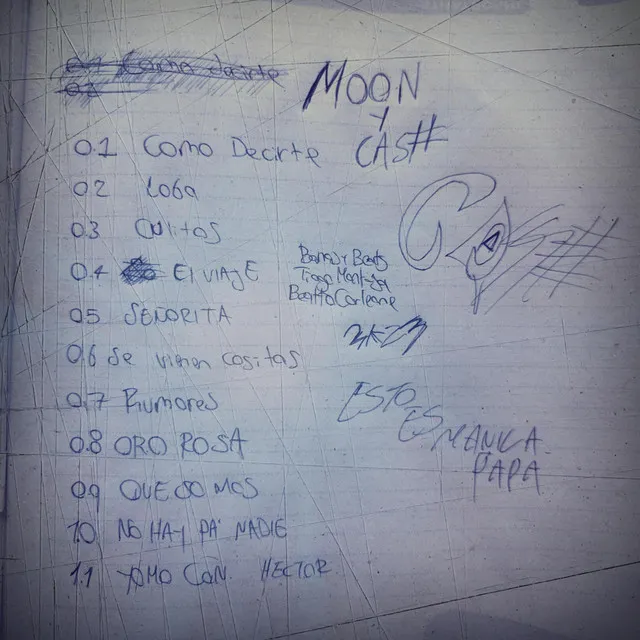 Como decirte
0.2
MOON
Y
CAS#
0.1 Como Decirte
0.2 Loba
0.3 Culitos
0.4 El VIAJE
0.5 SEÑORITA
0.6 Se vienen cositas
0.7 Rumores
0.8 ORO ROSA
0.9 QUEDOMOS
10. NO HAY PA' NADIE
11 YAMO CON. HECTOR
Tiago
Corleone
ESTO
ES MANUCA
PAPA